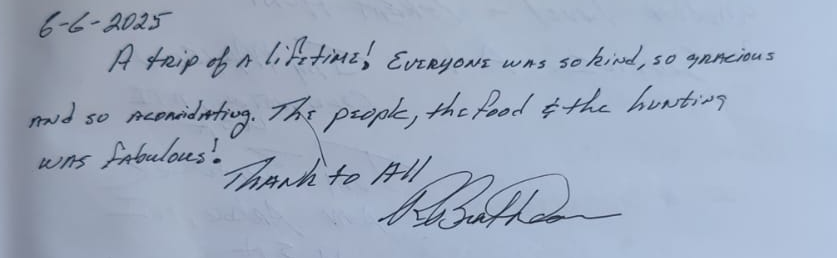 6-6-2025
A trip of a lifetime! Everyone was so kind, so gracious
and so acomidating. The people, the food & the hunting
was fabulous!
Thank to All